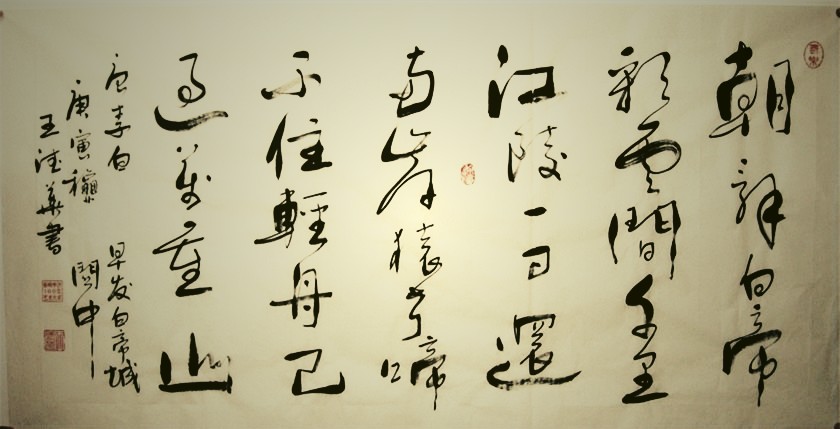 朝辞白帝
彩雲間千里
江陵一日還
两岸猿声啼
不住輕舟已
過萬重山
唐李白 早发白帝城
庚寅穐 閩中
王德華書